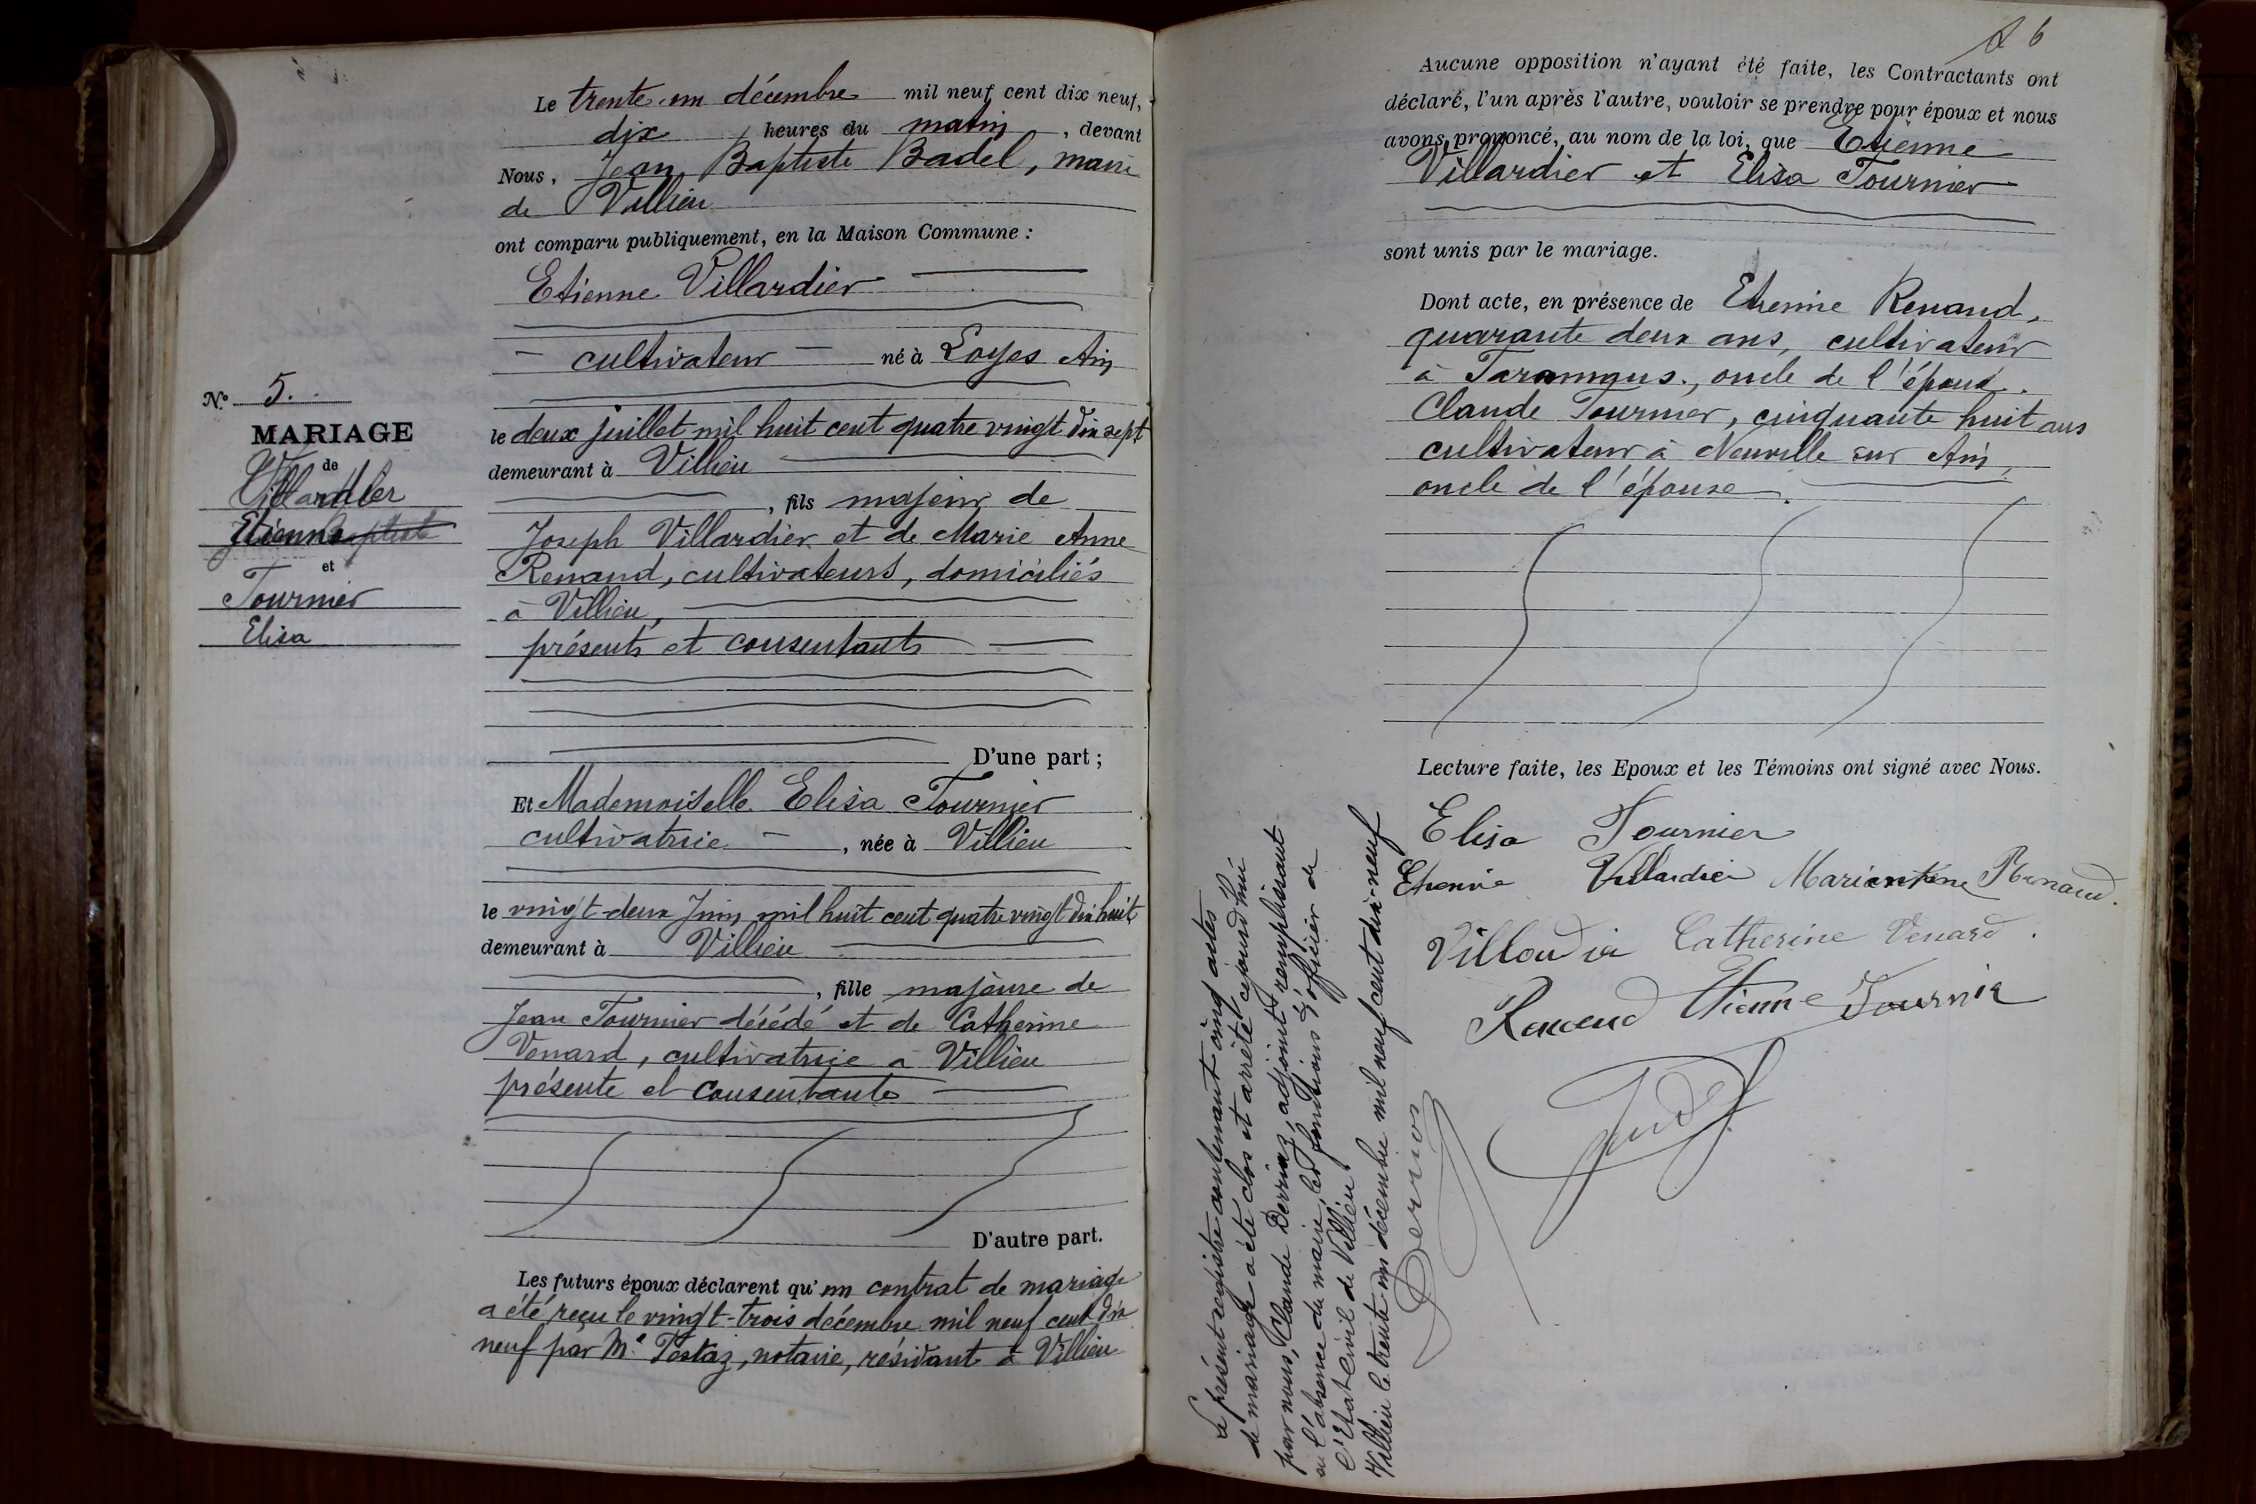 Le trente-un décembre mil neuf cent dix neuf,
dix heures du matin, devant
Nous, Jean Baptiste Badel, maire
de Villieu
ont comparu publiquement, en la Maison Commune :
Etienne Villardier
cultivateur né à Loyes Ain
le deux juillet mil huit cent quatre vingt dix sept
demeurant à Villieu
, fils majeur de
Joseph Villardier et de Marie Anne
Renand, cultivateurs, domiciliés
à Villieu,
présents et consentants
D'une part ;
Et Mademoiselle Elisa Tournier
cultivatrice, née à Villieu
le vingt-deux Juin mil huit cent quatre vingt dix huit
demeurant à Villieu
, fille majeure de
Jean Tournier décédé et de Catherine
Venard, cultivatrice à Villieu
présente et consentante
D'autre part.
Les futurs époux déclarent qu'un contrat de mariage
a été reçu le vingt-trois décembre mil neuf cent dix
neuf par Me Tostaz, notaire, résidant à Villieu
No 5.
MARIAGE
de
Villardier
Etienne
et
Tournier
Elisa
6
Aucune opposition n'ayant été faite, les Contractants ont
déclaré, l'un après l'autre, vouloir se prendre pour époux et nous
avons prononcé, au nom de la loi, que Etienne
Villardier et Elisa Tournier
sont unis par le mariage.
Dont acte, en présence de Etienne Renand,
quarante deux ans, cultivateur
à oncle de l'époux.
Claude Tournier, cinquante huit ans
cultivateur à Neuville sur Ain,
oncle de l'épouse.
Lecture faite, les Epoux et les Témoins ont signé avec Nous.
Elisa Tournier
Etienne Villardier Marie Renaud.
Catherine Venard.
Renaud Etienne Tournier
Le présent registre contenant cinq actes
de mariage a été clos et arrêté cejourd'hui
par nous, Claude Derriaz, adjoint remplissant
en l'absence du maire, les fonctions d'officier de
l'Etat Civil de Villieu
Villieu le trente un décembre mil neuf cent dix-neuf